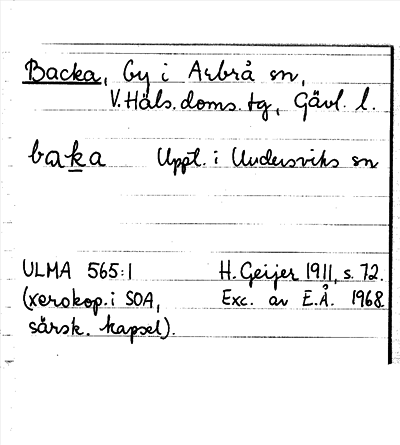 Backa, by i Arbrå sn,
V. Häls. doms. tg, Gävl. l.
baka Uppt. i Undersviks sn
ULMA 565:1 H. Geijer 1911, s. 72.
(xerokop. i SOA, Exc. av E.Å. 1968
särsk. kapsel).